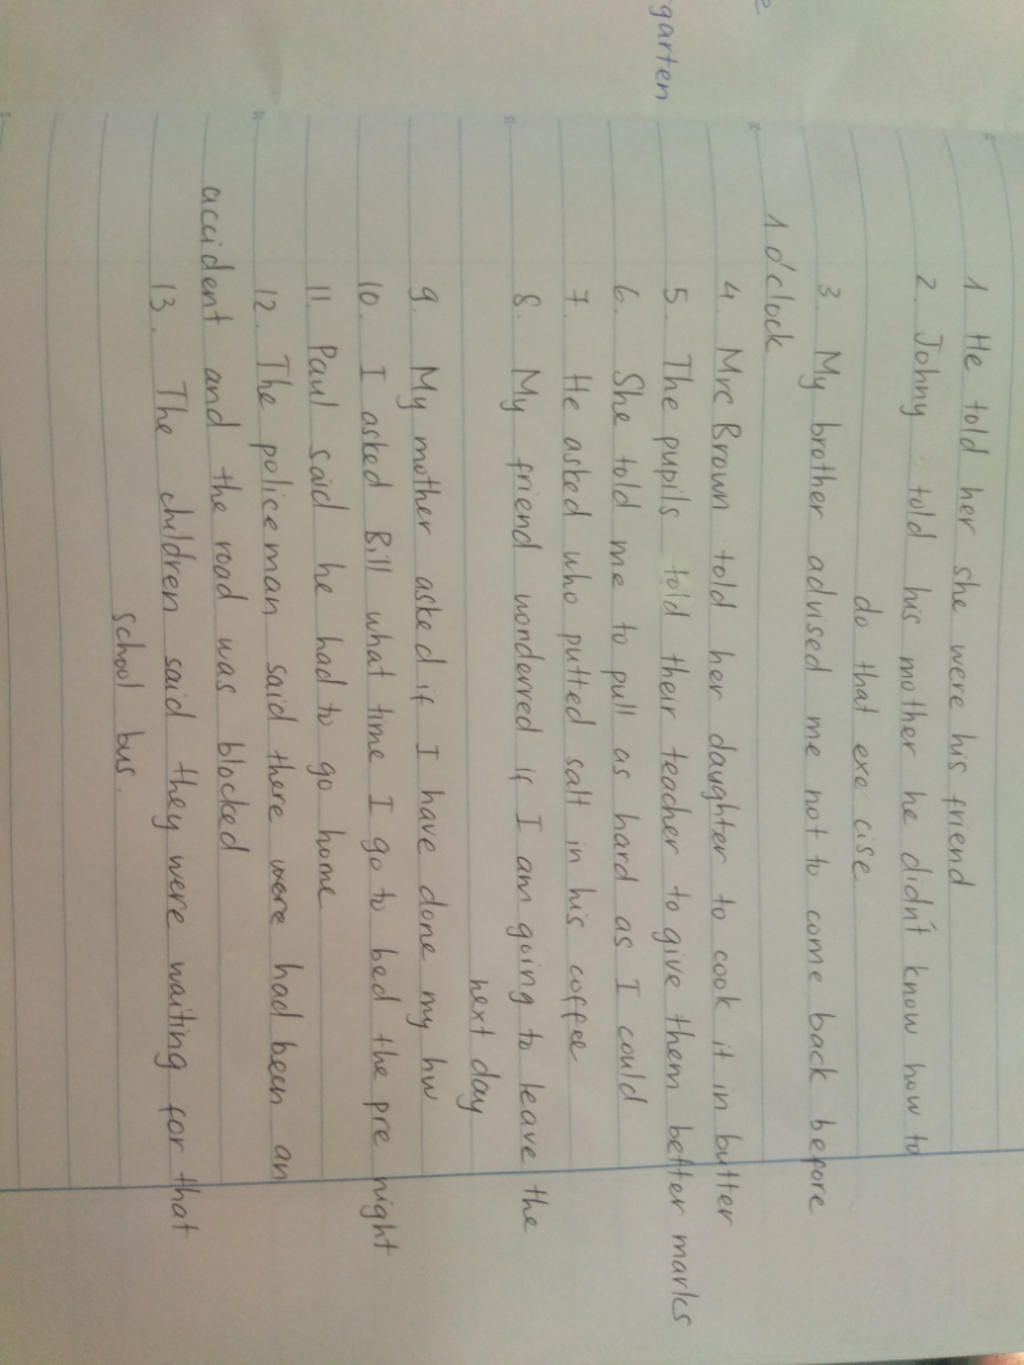 e
garten
1. He told her she were his friend
2. Johny told his mother he didn't know how to
do that exe cise
3. My brother advised me not to come back before
1 o'clock
4. Mrc Brown told her daughter to cook it in butter
5. The pupils told their teacher to give them better marks
6. She told me to pull as hard as I could
7. He asked who putted salt in his coffee
8. My friend wonderred if I am going to leave the
next day
9. My mother asked if I have done my hw
10. I asked Bill what time I go to bed the pre night
11. Paul said he had to go home
12. The policeman said there were had been an
accident and the road was blocked
13. The children said they were waiting for that
school bus.